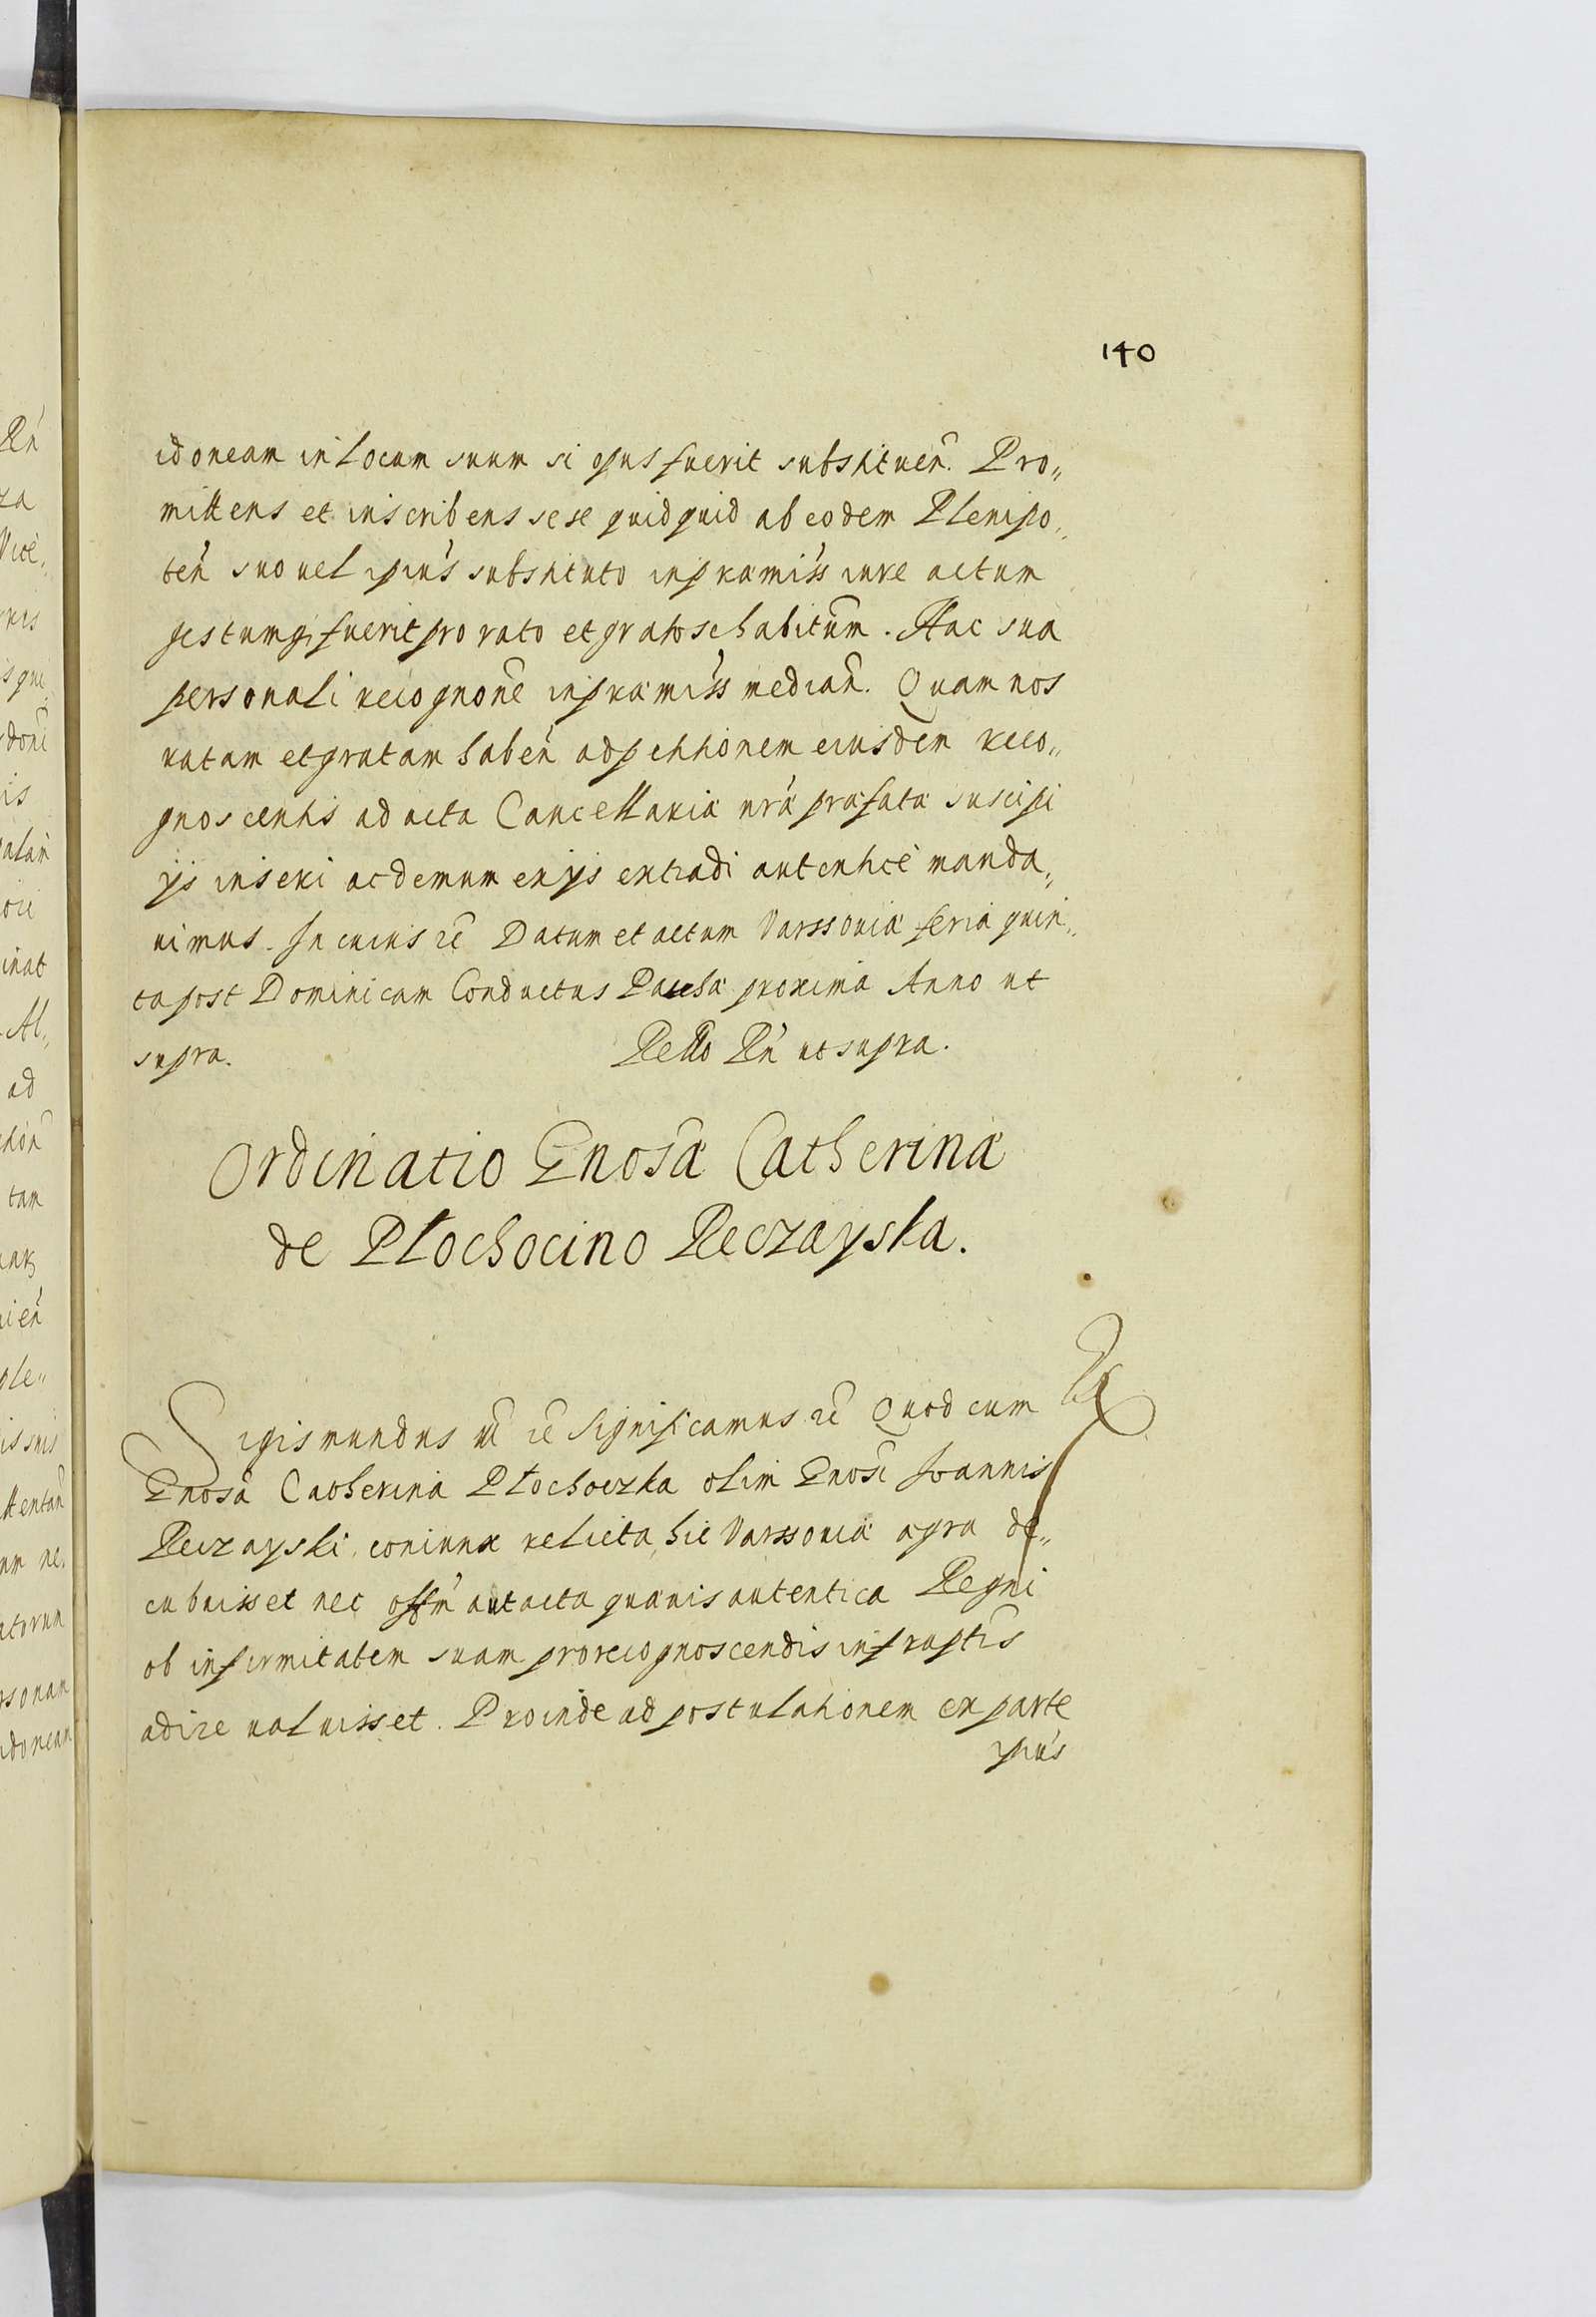 140
idoneam in locum suum si opus fuerit substituen̄. Pro„
mittens et inscribens sese quidquid ab eodem Plenipo„
ten̄ suo uel ipiūs substituto in præmiss̄ iure actum
gestumq₃ fuerit pro rato et grato se habitūm. Hac sua
personali recognonē in præmiss̄ median̄. Quam nos
ratam et gratam haben̄ ad petitionem eiusdem reco„
gnoscentis ad acta Cancellariæ nr̄æ præfatæ suscipi
ijs inseri ac demum ex ijs extradi autenticè manda„
uimus. In cuius rē Datum et actum Varssouiæ feria quin„
ta post Dominicam Conductus Paschæ proxima Anno ut
supra.
Rello Rn̄ ut supra.
Ordinatio Gnosæ Catherinæ
de Płochocino Reczayska.
Sigismundus etc̄ rē Significamus rē Quod cum
Gnosā Catherina Płochoczka olim Gnosī Joannis
Reczayski coniunx relicta, hic Varssouiæ ægra de„
cubuisset nec offm̄ aut acta quæuis autentica Regni
ob infirmitatem suam pro recognoscendis infraptīs
adire ualuisset. Proinde ad postulationem ex parte
ipiūs
Rn̄
za
Vice„
is que„
is
oci
inat
Al„
ad
tam
ien̄
ple„
is suis
um ne„
rsonam
idoneam